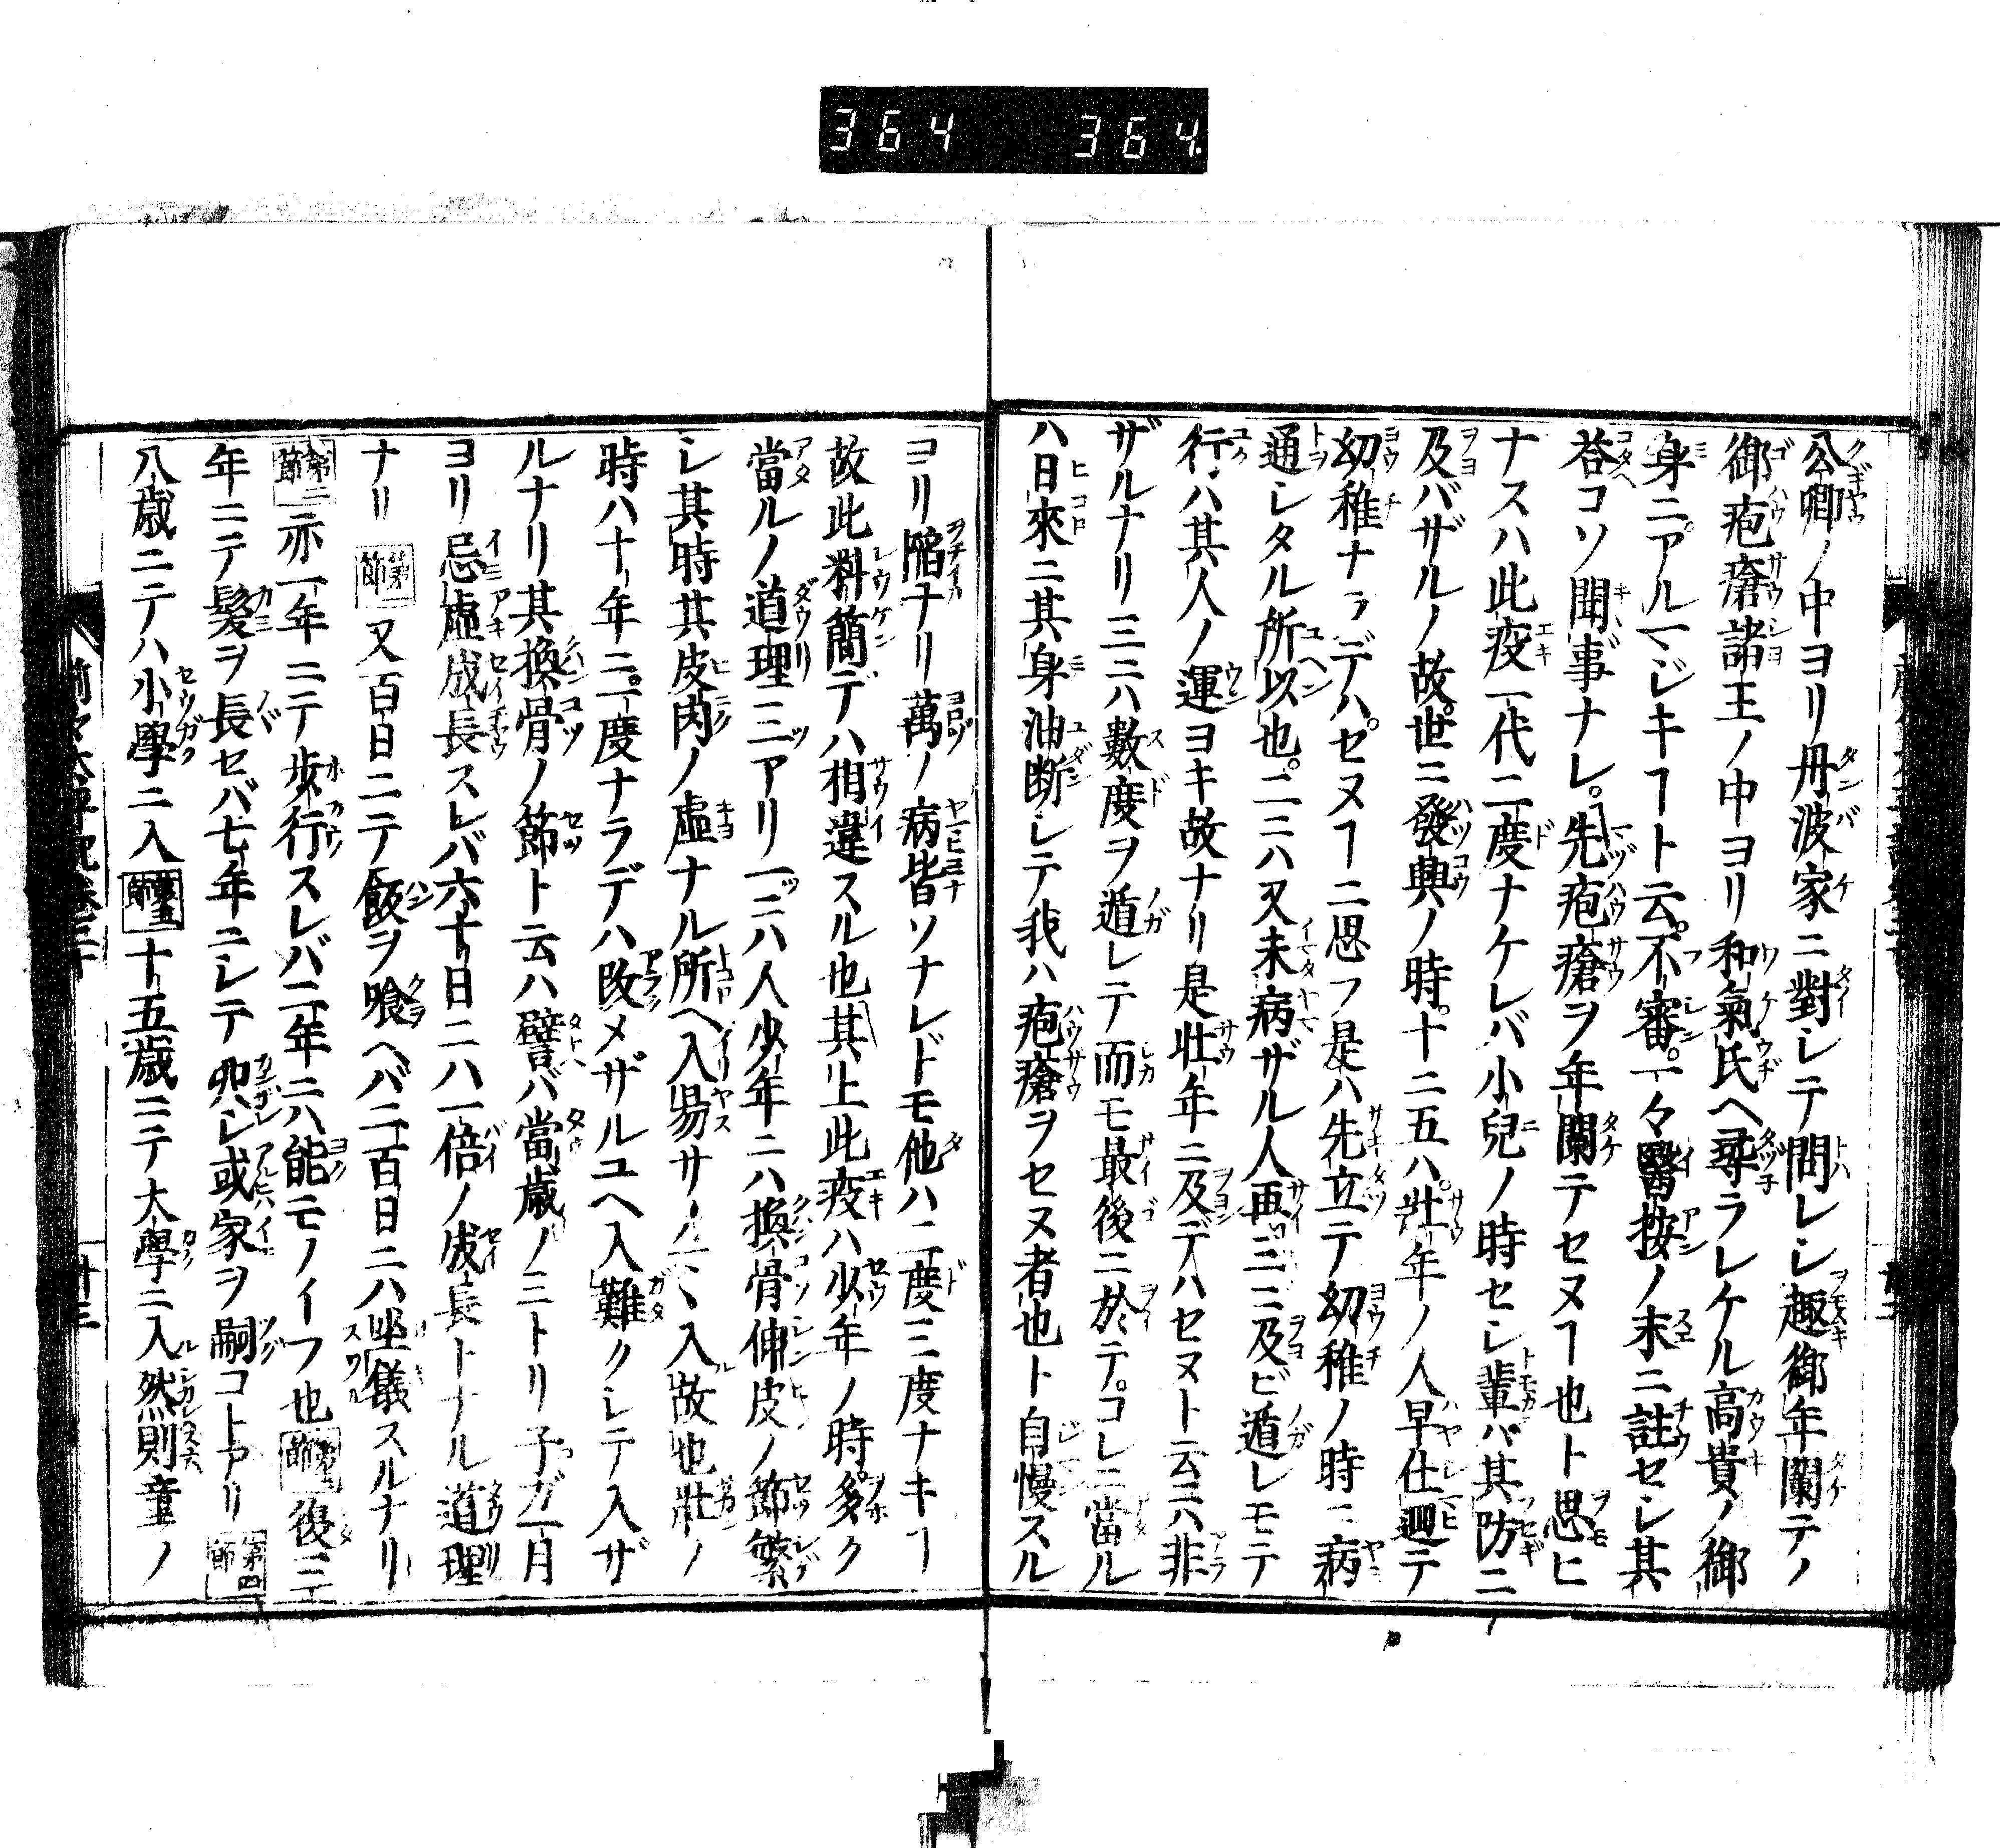 364 364
公卿ノ中ヨリ丹波家ニ對シテ問レシ趣御年闌テノ
御疱瘡諸王ノ中ヨリ和氣氏ヘ尋ラレケル高貴ノ御
身ニアルマジキヿト云不審一々醫按ノ末ニ註セシ其
荅コソ聞事ナレ。先疱瘡ヲ年闌テセヌヿ也ト思ヒ
ナスハ此疫一代二度ナケレバ小兒ノ時セシ輩ハ其防ニ
及バザルノ故世ニ發興ノ時。十ニ五ハ壯年ノ人早仕廻テ
幼稚ナラデハセヌヿニ思フ是ハ先立テ幼稚ノ時ニ病
通シタル所以也。二ニハ又未病ザル人再三ニ及ビ遁レモテ
行ハ其人ノ運ヨキ故ナリ是壯年ニ及デハセヌト云ニハ非
ザルナリ三ニハ數度ヲ遁レテ而モ最後ニ於テコレニ當ル
ハ日來ニ其身油断シテ我ハ疱瘡ヲセヌ者也ト自慢スル
ヨリ陷ナリ萬ノ病皆ソナレドモ他ハ二度三度ナキヿ
故此料簡デハ相違スル也其上此疫ハ少年ノ時多ク
當ルノ道理三ツアリ一ツニハ人少年ニハ換骨伸皮ノ節繁
シ其時其皮肉ノ虛ナル所ヘ入昜サノミ入故也壯ノ
時ハ十年ニ一度ナラデハ改メザルユヘ入難クシテ入ザ
ルナリ其換骨ノ節ト云ハ譬バ當歳ノ三トリ子ガ一月
ヨリ忌虛成長スレバ六十日ニハ一倍ノ成長トナル道理
ナリ 第一節 又百日ニテ飯ヲ喰ヘバ二百日ニハ坐儀スルナリ
第二節 亦一年ニテ歩行スレバ二年ニハ能モノイフ也 第三節 復三
年ニテ髮ヲ長セバ七年ニシテ丱シ或家ヲ嗣コトアリ 第四節
八歳ニテハ小學ニ入 第五節 十五歳ニテ大學ニ入然則童ノ